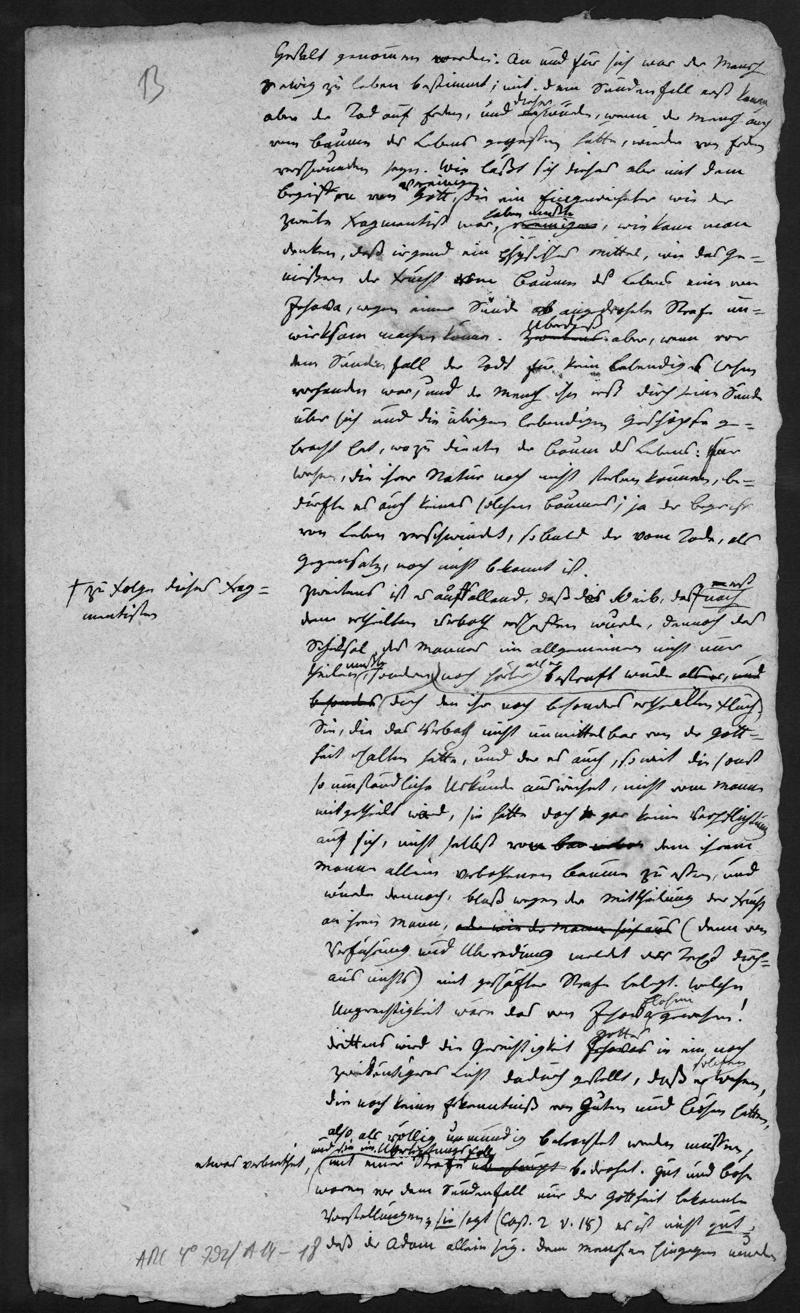 13
Gestalt genommen werden. An und für sich war der Mensch
zu ewig zu leben bestimmt; mit dem Sündenfall erst kam
aber der Tod auf Erden, und dieser würde, wenn der Mensch auch
vom Baume des Lebens gegessen hätte, wieder von Erden
verschwunden seyn. Wie läßt sich dieses aber mit dem
Begriffen von Gott vereinigen, die ein Eingeweihter wie der
zweite Fragmentist war, haben mußte, wie kann man
denken, daß irgend ein physisches Mittel, wie das Ge=
nießen der Frucht vom Baume des Lebens eine von
Jehova, wegen einer Sünde angedrohte Strafe un=
wirksam machen könne. Überdieß aber, wenn vor
dem Sündenfall der Todt für kein lebendiges Wesen
vorhanden war, und der Mensch ihn erst durch seine Sünde
über sich und die übrigen lebendigen Geschöpfe ge=
bracht hat, wozu diente der Baum des Lebens: für
Wesen, die ihrer Natur nach nicht sterben können, be=
dürfte es auch keines solchen Baumes; ja der Begriff
von Leben verschwindet, sobald der vom Tode, als
Gegensatz, noch nicht bekannt ist.
† zu Folge dieses Frag=
mentisten
zweitens ist es auffallend, daß das Weib, das † erst nach
dem ertheilten Verboth erschaffen wurde, dennoch das
Schicksal des Mannes im allgemeinen nicht nur
theilen mußte, sondern noch härter als er bestraft wurde
besonders (durch den ihr noch besonders ertheilten Fluch)
Sie, die das Verboth nicht unmittelbar von der Gott=
heit erhalten hatte, und der es auch, so weit die sonst
so umständliche Urkunde ausweiset, nicht vom Manne
mitgetheilt ward, sie hatte doch gar keine Verpflichtung
auf sich, nicht selbst von dem ihrem
Manne allein verbothenen Baume zu essen, und
wurde dennoch, bloß wegen der Mittheilung der Frucht
an ihren Mann, oder wie der Mann sich aus (denn von
Verführung und Überredung meldet der Text durch=
aus nichts) mit geschärfter Strafe belegt. Welche
Ungerechtigkeit wäre das von Jehova gewesen!
drittens wird die Gerechtigkeit Gottes in ein noch
zweideutigeres Licht dadurch gestellt, daß er Wesen,
die noch keine Erkenntniß von Guten und Bösen hatten,
also als völlig unmündig betrachtet werden mußten,
etwas verbiethet, und sie im Übertretungsfalle
mit einer Strafe bedrohet. Gut und Böse
waren vor dem Sündenfall nur der Gottheit bekannte
Vorstellungen, sie sagt (Cap. 2 v. 18) es ist nicht gut,
daß der Adam allein sey. dem Menschen hingegen wurden